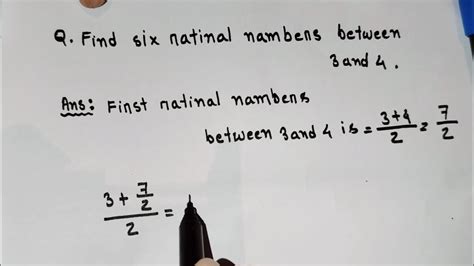 Q. Find six natinal nambens between
3 and 4 .
Ans: Finst natinal nambens
between 3 and 4 is = 3+4/2 = 7/2
(3 + 7/2)/2 =